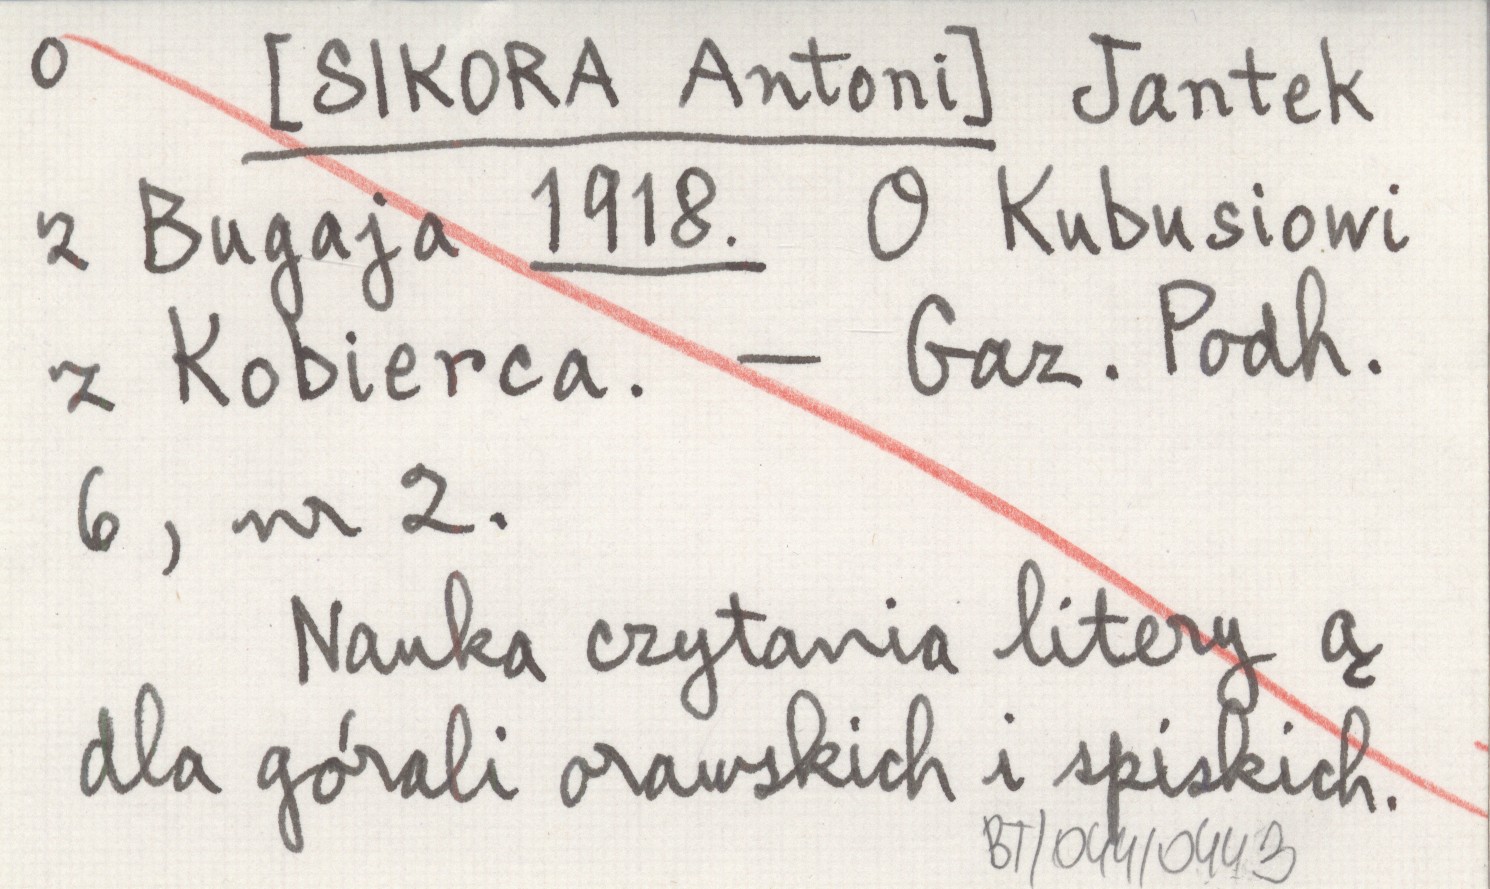 o [SIKORA Antoni] Jantek
z Bugaja 1918. O Kubusiowi
z Kobierca. — Gaz. Podh.
6, nr 2.
Nauka czytania litery ą
dla górali orawskich i spiskich.
BT/044/0443